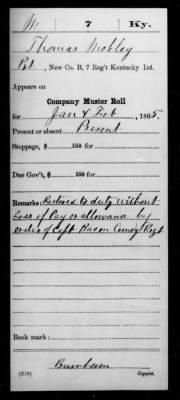 M 7 Ky.
Thomas Mobley
Pvt, New Co. B, 7 Reg't Kentucky Inf.
Appears on
Company Muster Roll
for Jan & Feb, 1865
Present or absent Present
Stoppage, $ 100 for
Due Gov't, $ 100 for
Remarks: Restored to duty without
Loss of Pay or allowance by
order of Capt Bacon Comdg Regt
Book mark:
Burnham
(358) Copyist.